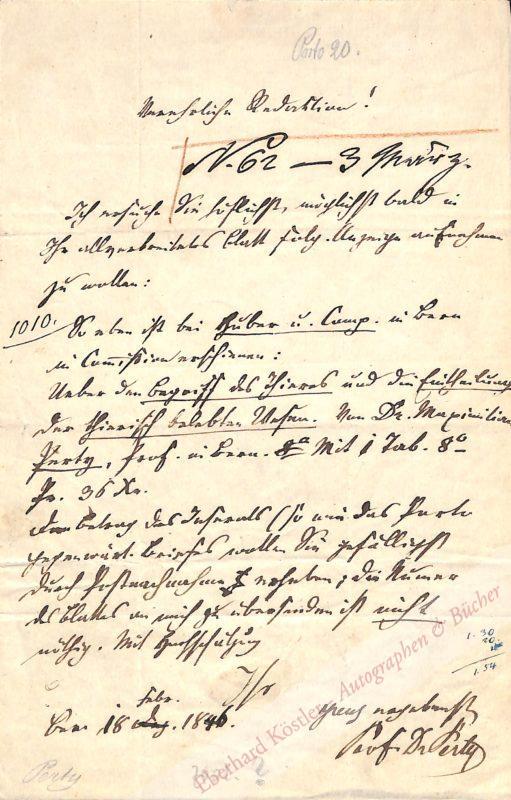 Porto 20.
Verehrliche Redaktion!
N. 62 — 3 März.
Ich ersuche Sie höflichst, möglichst bald in
Ihr allverbreitetes Blatt folg. Anzeige aufnehmen
zu wollen:
1010. So eben ist bei Huber u. Comp. in Bern
in Commission erschienen:
Ueber den Begriff des Thieres und die Eintheilung
der thierisch belebten Wesen. Von Dr. Maximilian
Perty, Prof. in Bern. Mit 1 Tab. 8o
Pr. 36 Xr.
Den Betrag des Inserats (so wie das Porto
gegenwärt. Briefes wollen Sie gefälligst
durch Postnachnahme erheben; die Numer
des Blattes an mich zu übersenden ist nicht
nöthig. Mit Hochschätzung
1.30
20.
1.54
Ihr
Bern 18 Febr. 1846.
ganz ergebenster
Prof. Dr Perty
Perty
Eberhard Köstler Autographen & Bücher